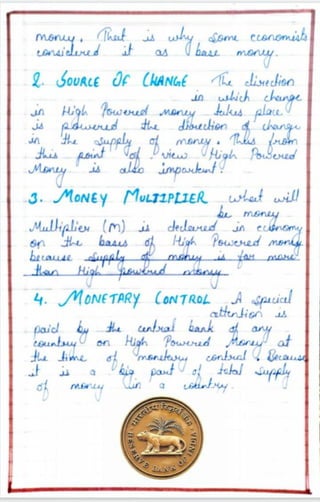 money. That is why some economists
considered it as base money.
2. SOURCE OF CHANGE The direction
in which change
in High Powered money takes place
is powered the direction of change
in the supply of money. Thus from
this point of view High Powered
Money is also important.
3. MONEY MULTIPLIER what will
be money
Multiplier (M) is declared in economy
on the basis of High Powered money
because supply of money is far more
than High powered money
4. MONETARY CONTROL A special
attention is
paid by the central bank of any
country on High Powered Money at
the time of monetary control. Because
it is a big part of total supply
of money in a country.
भारतीय रिज़र्व बैंक
RESERVE BANK OF INDIA